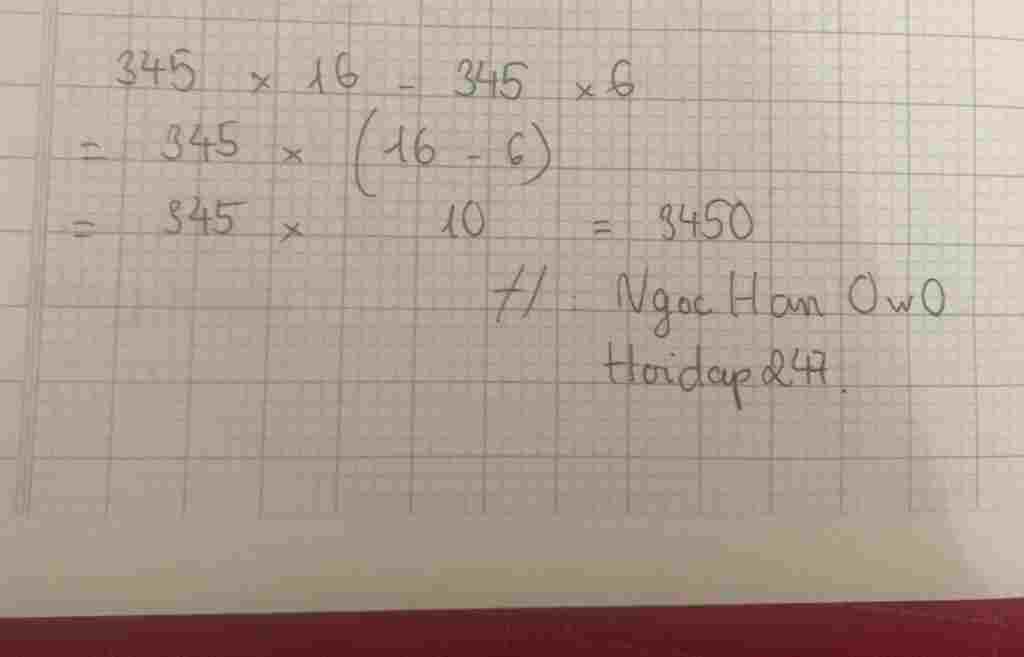 345 × 16 - 345 × 6
= 345 × (16 - 6)
= 345 × 10 = 3450
H : Ngoc Han OwO
Hoidap247.